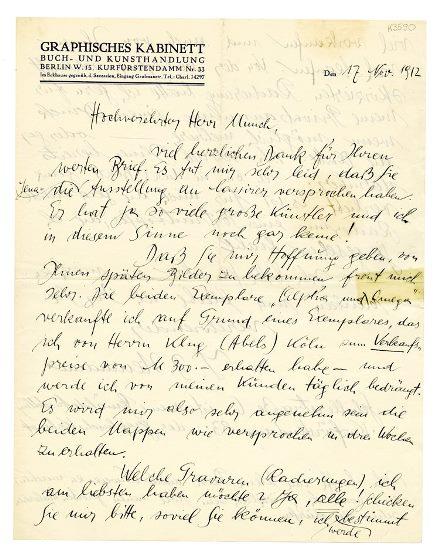 K3590
GRAPHISCHES KABINETT
BUCH- UND KUNSTHANDLUNG
BERLIN W. 15, KURFÜRSTENDAMM Nr. 33
Im Eckhause gegenüb. d. Secession, Eingang Grolmanstr. Tel.: Charl. 34297
Den 17 Nov. 1912
Hochverehrter Herr Munch,
viel herzlichen Dank für Ihren
werten Brief. Es tut mir sehr leid, daß Sie
Jena-
die Ausstellung an Cassirer versprochen haben.
Er hat ja so viele große Künstler und ich
in diesem Sinne noch gar keine!
Daß Sie mir Hoffnung geben, von
Ihnen später Bilder zu bekommen freut mich
sehr. Die beiden Exemplare „Alpha und Omega"
verkaufte ich auf Grund eines Exemplares, das
ich von Herrn Klug (Abels) Köln zum Verkaufs
preise von M 300.– erhalten habe – und
werde ich von meinen Kunden täglich bedrängt.
Es wird mir also sehr angenehm sein die
beiden Mappen wie versprochen in drei Wochen
zu erhalten.
Welche Gravuren (Radierungen) ich
am liebsten haben möchte? Ja, alle! Schicken
Sie mir bitte, soviel Sie können, ich bestimmt
werde